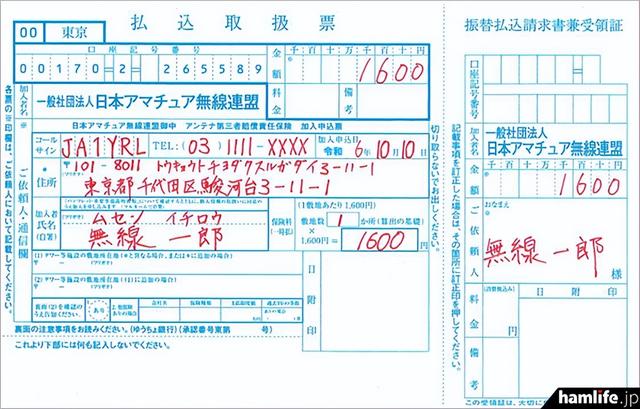 払込取扱票
00 東京
口座記号番号
00170=2=265589
金額
千百十万千百十円
1600
加入者名
一般社団法人日本アマチュア無線連盟
料金
備考
日本アマチュア無線連盟御中 アンテナ第三者賠償責任保険 加入申込票
コールサイン JA1YRL TEL:(03)1111-XXXX
加入申込日 令和 6年10月10日
ご依頼人・通信欄
※住所
〒101-8011 トウキョウトチヨダクスルガダイ3-11-1
東京都千代田区駿河台3-11-1
加入者氏名(自署)
(フリガナ)
ムセン イチロウ
無線 一郎
保険料(一時払)
(1敷地あたり1,600円)
敷地数 1 か所(算出の基礎)
×1,600円= 1600 円
日附印
裏面の注意事項をお読みください。(ゆうちょ銀行)(承認番号東第 号)
これより下部には何も記入しないでください。
各票の※印欄は、ご依頼人において記載してください。
切り取らないでお出しください。
記載事項を訂正した場合は、その箇所に訂正印を押してください。
振替払込請求書兼受領証
口座記号番号
加入者名
一般社団法人
日本アマチュア無線連盟
金額
千百十万千百十円
1600
ご依頼人
おなまえ
無線 一郎 様
料金
(消費税込み)
円
備考
日附印
この受領証は、大切に
hamlife.jp